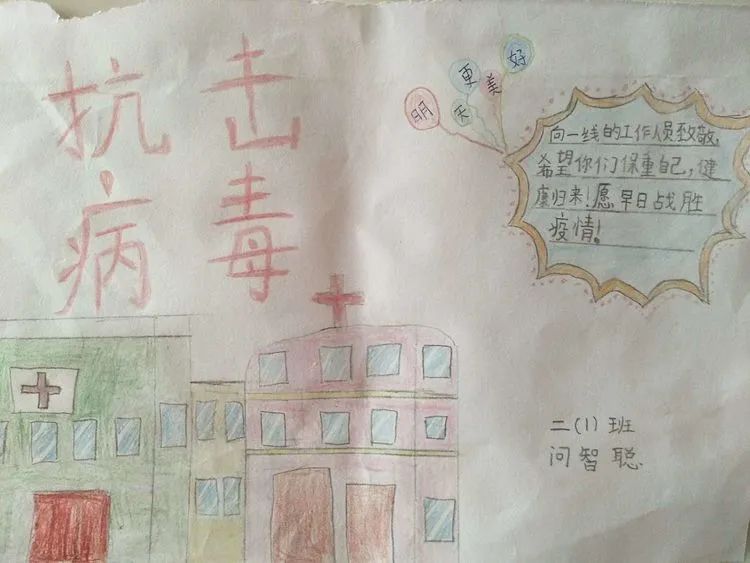 抗击
病毒
明天更美好
向一线的工作人员致敬,
希望你们保重自己,健
康归来!愿早日战胜
疫情!
二(1)班
问智聪